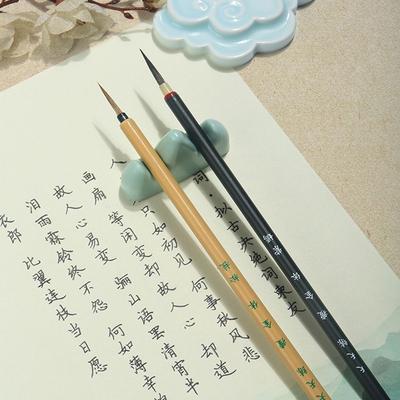 词·拟古决绝词柬友
人
只如初见 何事秋风悲
画扇 等闲变却故人心 却道
故人心易变 骊山语罢清宵半
泪雨霖铃终不怨 何如薄幸
衣郎 比翼连枝当日愿
天天练 瘦金体
天天练 瘦金体